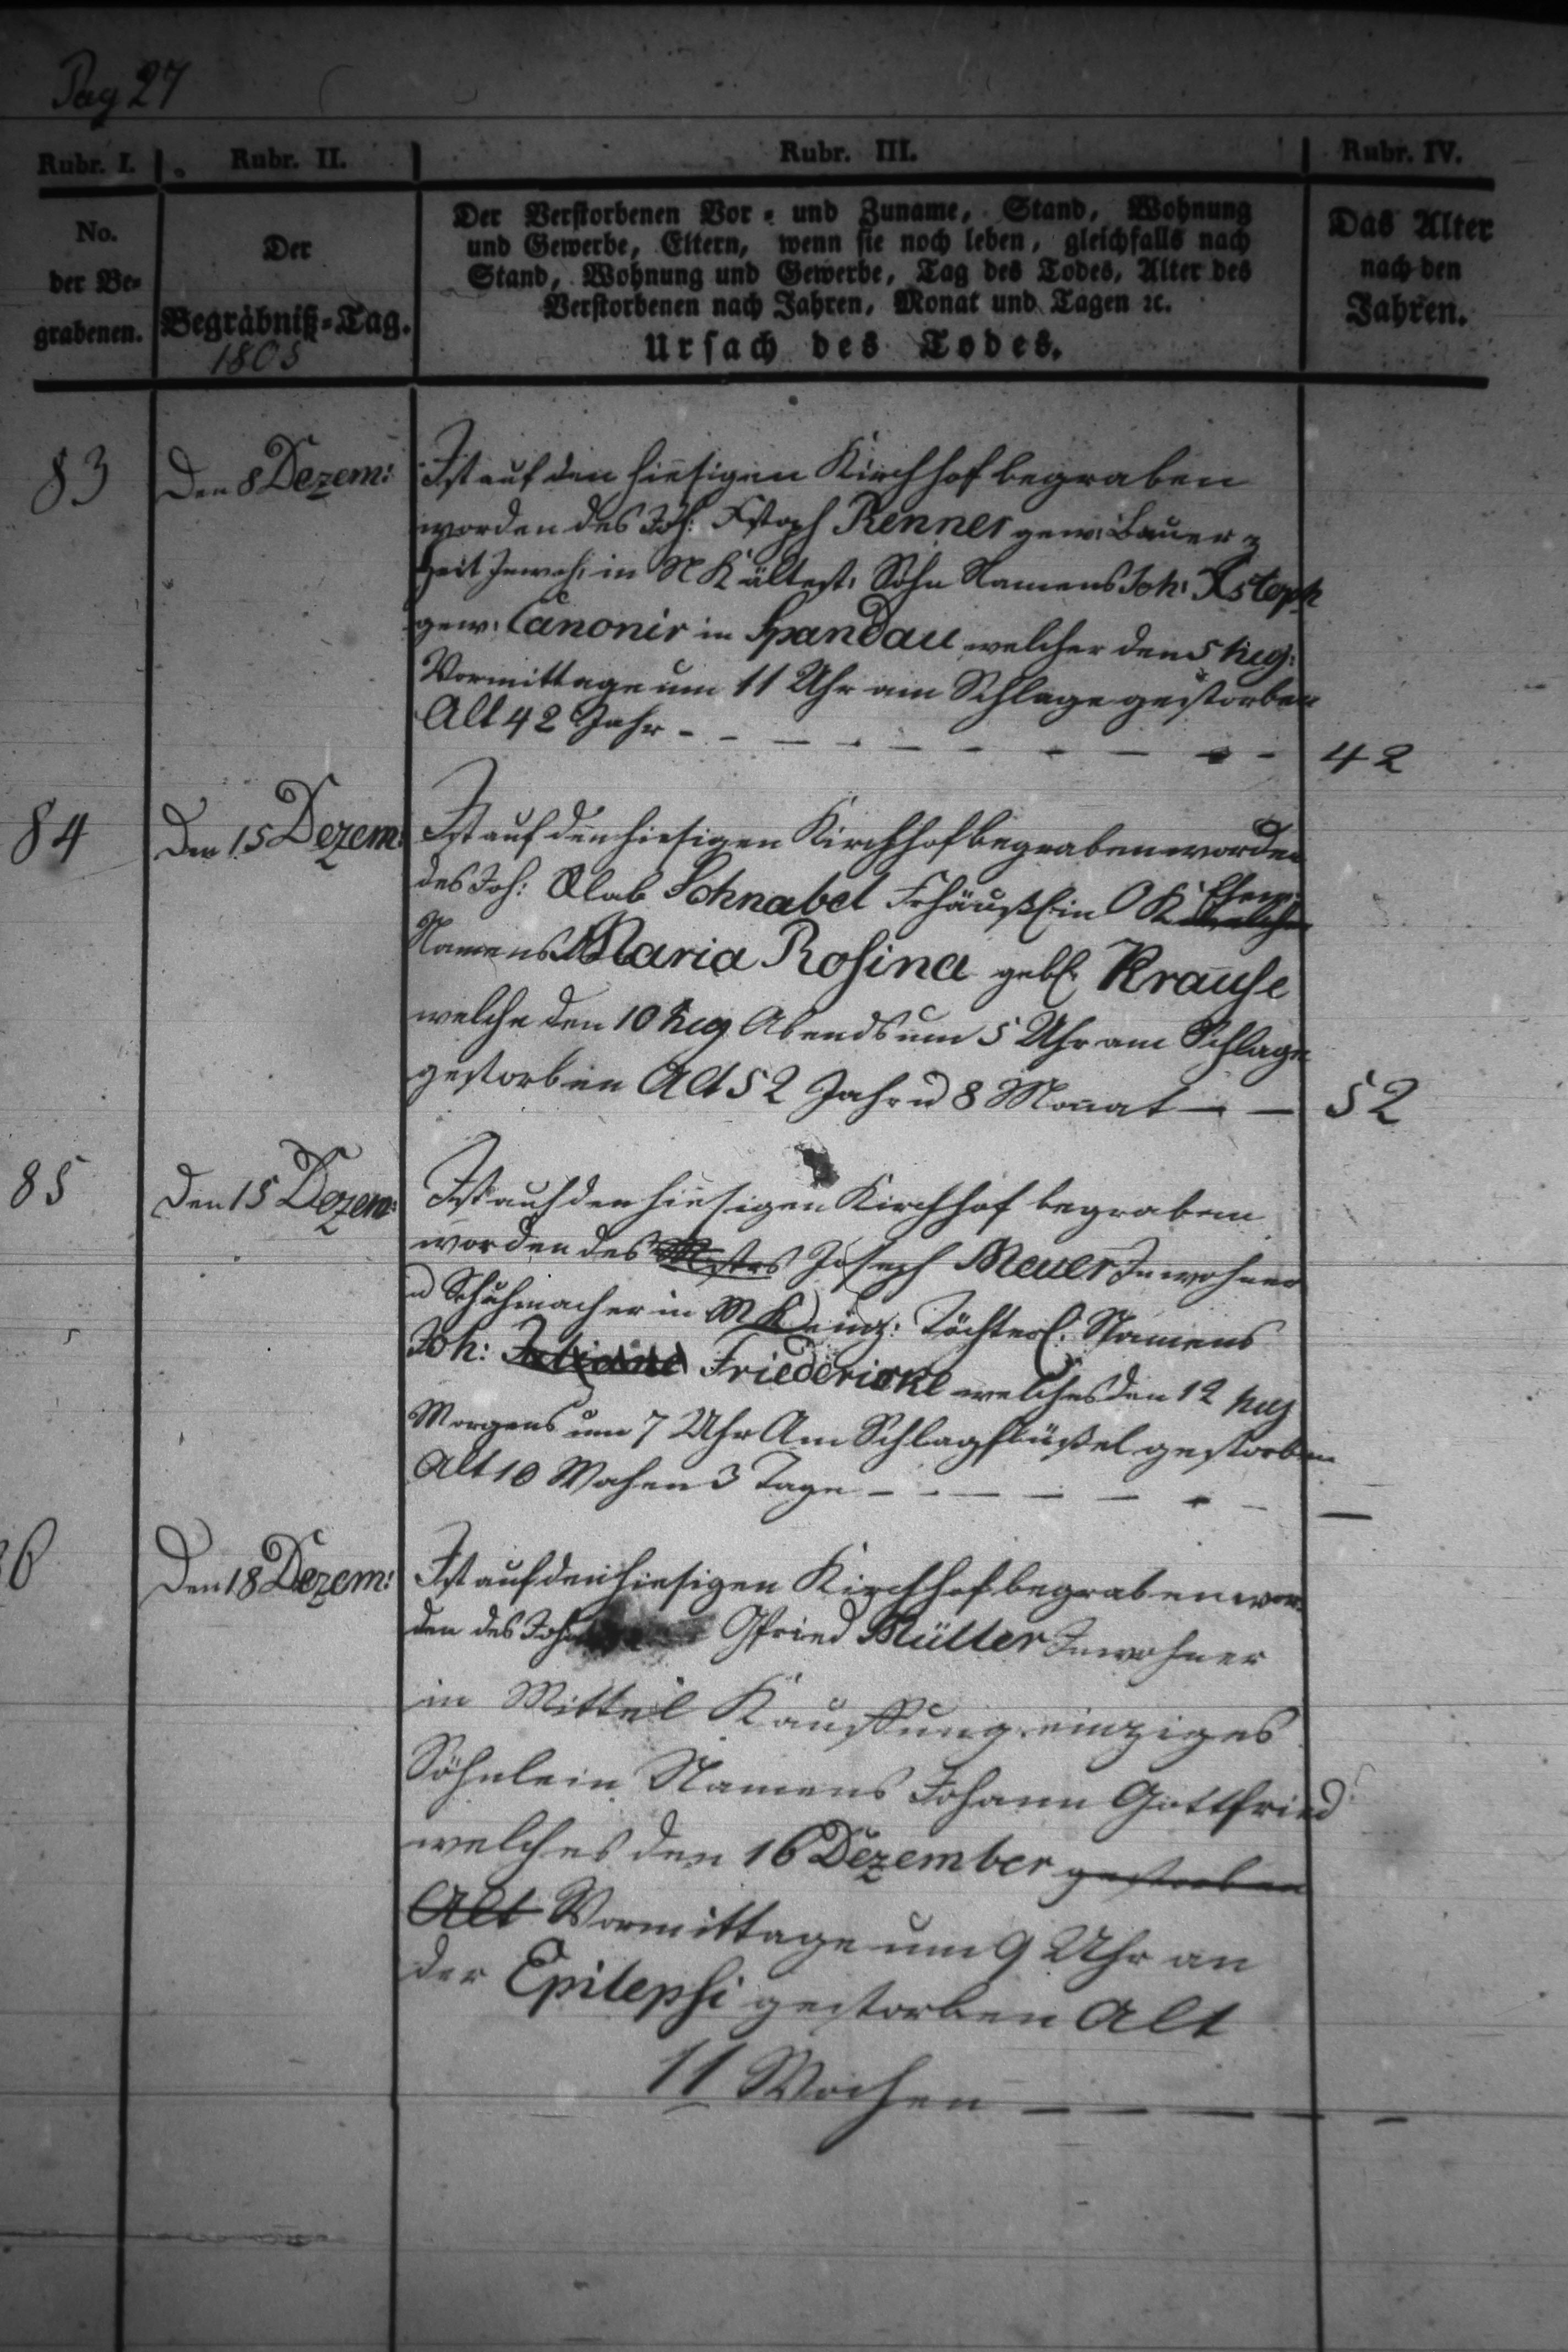 Pag 27
Rubr. I. Rubr. II. Rubr. III. Rubr. IV.
No.
der Be-
grabenen.
Der
Begräbniß-Tag.
1805
Der Verstorbenen Vor- und Zuname, Stand, Wohnung
und Gewerbe, Eltern, wenn sie noch leben, gleichfalls nach
Stand, Wohnung und Gewerbe, Tag des Todes, Alter des
Verstorbenen nach Jahren, Monat und Tagen ꝛc.
Ursach des Todes.
Das Alter
nach den
Jahren.
83 Den 8 Dezem: Ist auf den hiesigen Kirchhof begraben
worden des Joh: Xstoph Renner gew: Bauer z
Zeit Inwoh: in N K ältest: Sohn Namens Joh: Xstoph
gew: Canonir in Spandau welcher den 5 huj:
Vormittage um 11 Uhr am Schlage gestorben
Alt 42 Jahr 42
84 Den 15 Dezem: Ist auf den hiesigen Kirchhof begraben worden
des Joh: Schnabel Frhäußl: in O K Ehew:
Namens Maria Rosina geb: Krause
welche den 10 huj Abends um 5 Uhr am Schlage
gestorben Alt 52 Jahr u 8 Monat 52
85 Den 15 Dezem: Ist auf den hiesigen Kirchhof begraben
worden des Mstrs Joseph Meuer Inwohner
u Schuhmacher in M K einz: Töchterl: Namens
Joh: Juliane Friedericke welches den 12 huj
Morgens um 7 Uhr Am Schlagflüßel gestorben
Alt 10 Wochen 3 Tage —
86 Den 18 Dezem: Ist auf den hiesigen Kirchhof begraben wor-
den des Joh Gfried Müller Inwohner
in Mittel Kauffung einziges
Söhnlein Namens Johann Gottfried
welches den 16 Dezember gestorben
Alt Vormittage um 9 Uhr an
der Epilepsi gestorben Alt
11 Wochen —